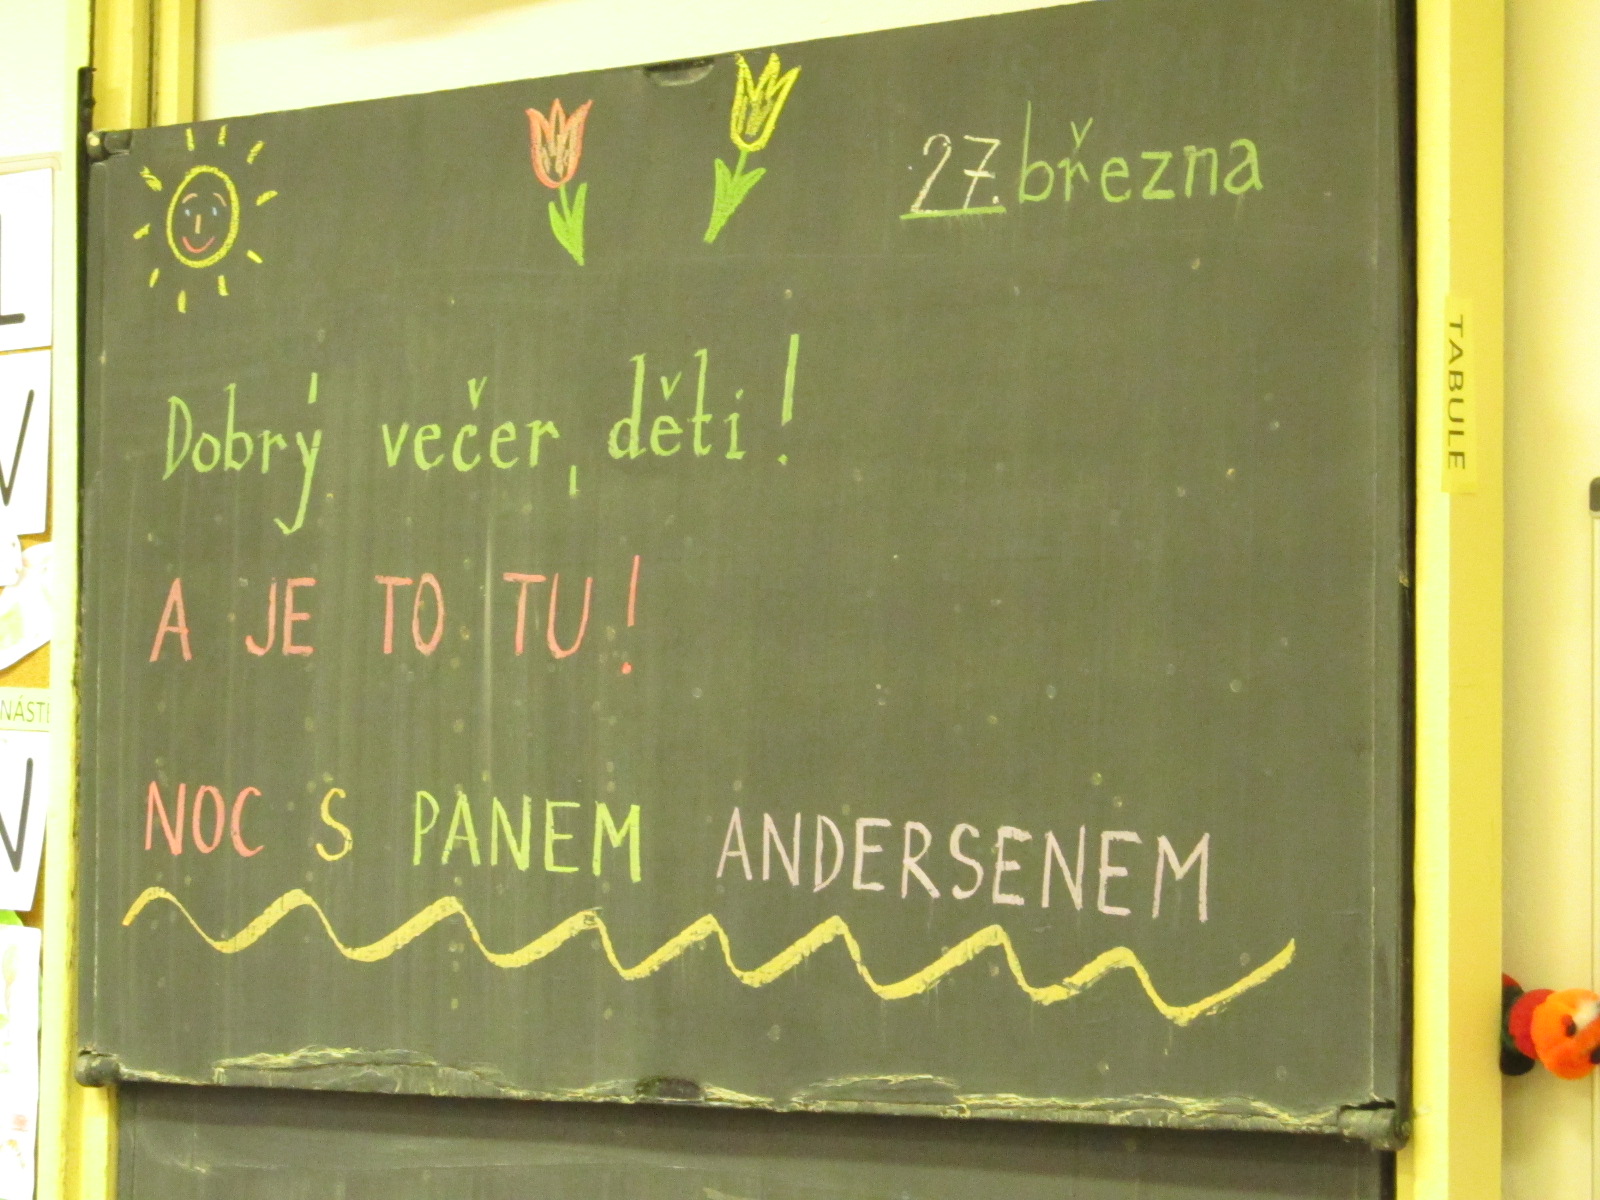 27. března
Dobrý večer, děti!
A JE TO TU!
NOC S PANEM ANDERSENEM
TABULE
L
V
NÁSTĚ